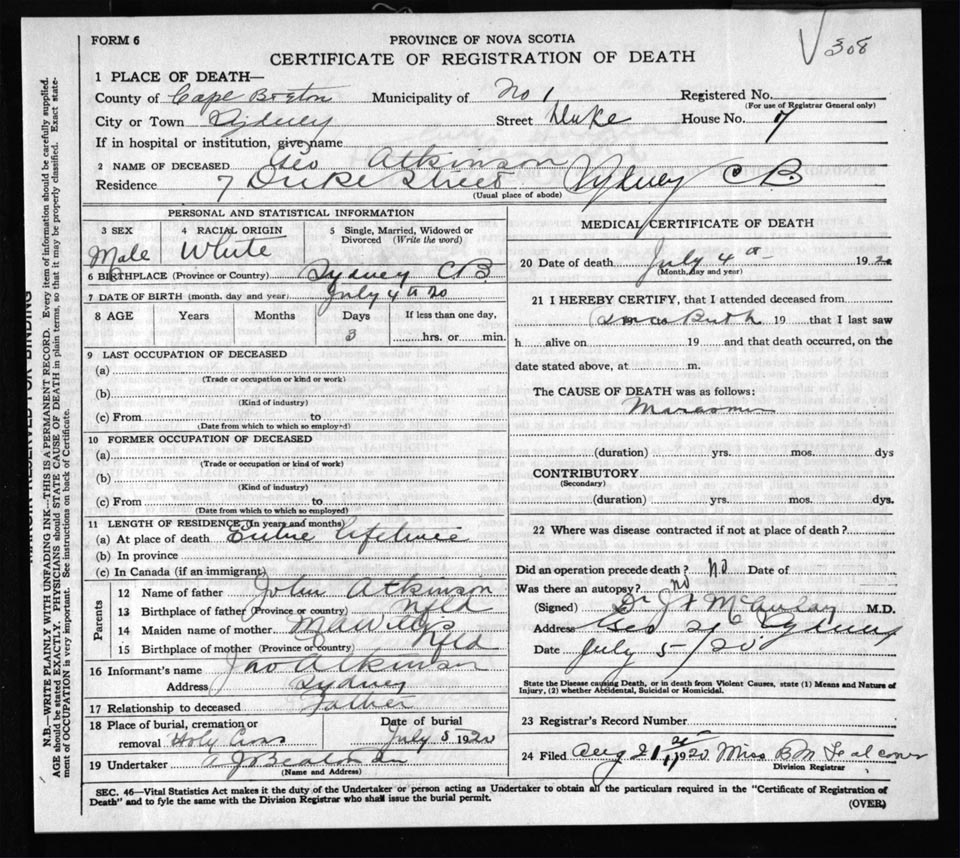 FORM 6
PROVINCE OF NOVA SCOTIA
CERTIFICATE OF REGISTRATION OF DEATH
308
1 PLACE OF DEATH—
County of Cape Breton Municipality of No 1 Registered No.
(For use of Registrar General only)
City or Town Sydney Street Duke House No. 7
If in hospital or institution, give name
2 NAME OF DECEASED Geo Atkinson
Residence 7 Duke Street Sydney C B.
(Usual place of abode)
PERSONAL AND STATISTICAL INFORMATION
3 SEX Male
4 RACIAL ORIGIN White
5 Single, Married, Widowed or Divorced (Write the word)
6 BIRTHPLACE (Province or Country) Sydney C.B.
7 DATE OF BIRTH (month, day and year) July 4th 20
8 AGE Years Months Days If less than one day,
3 hrs. or min.
9 LAST OCCUPATION OF DECEASED
(a)
(Trade or occupation or kind or work)
(b)
(Kind of industry)
(c) From to
(Date from which to which so employed)
10 FORMER OCCUPATION OF DECEASED
(a)
(Trade or occupation or kind of work)
(b)
(Kind of industry)
(c) From to
(Date from which to which so employed)
11 LENGTH OF RESIDENCE (In years and months)
(a) At place of death Entire lifetime
(b) In province
(c) In Canada (if an immigrant)
Parents
12 Name of father John Atkinson
13 Birthplace of father (Province or country) Nfld
14 Maiden name of mother Willis
15 Birthplace of mother (Province or country) Nfld
16 Informant's name Jno Atkinson
Address Sydney
17 Relationship to deceased Father
18 Place of burial, cremation or removal Holy Cross Date of burial July 5 1920
19 Undertaker A J Beaton
(Name and Address)
MEDICAL CERTIFICATE OF DEATH
20 Date of death July 4th 1920
(Month, day and year)
21 I HEREBY CERTIFY, that I attended deceased from
since Birth 19 that I last saw
h alive on 19 and that death occurred, on the
date stated above, at m.
The CAUSE OF DEATH was as follows:
Marasmus
(duration) yrs. mos. dys
CONTRIBUTORY
(Secondary)
(duration) yrs. mos. dys.
22 Where was disease contracted if not at place of death?
Did an operation precede death? No Date of
Was there an autopsy? no
(Signed) Dr McAulay M.D.
Address Geo St Sydney
Date July 5/20
State the Disease causing Death, or in death from Violent Causes, state (1) Means and Nature of
Injury, (2) whether Accidental, Suicidal or Homicidal.
23 Registrar's Record Number
24 Filed Aug 21 1920 Miss B M Falconer
Division Registrar
SEC. 46—Vital Statistics Act makes it the duty of the Undertaker or person acting as Undertaker to obtain all the particulars required in the "Certificate of Registration of
Death" and to fyle the same with the Division Registrar who shall issue the burial permit.
(OVER)
MARGIN RESERVED FOR BINDING
N.B.—WRITE PLAINLY WITH UNFADING INK—THIS IS A PERMANENT RECORD. Every item of information should be carefully supplied.
AGE should be stated EXACTLY. PHYSICIANS should STATE CAUSE OF DEATH in plain terms, so that it may be properly classified. Exact state-
ment of OCCUPATION is very important. See instructions on back of Certificate.